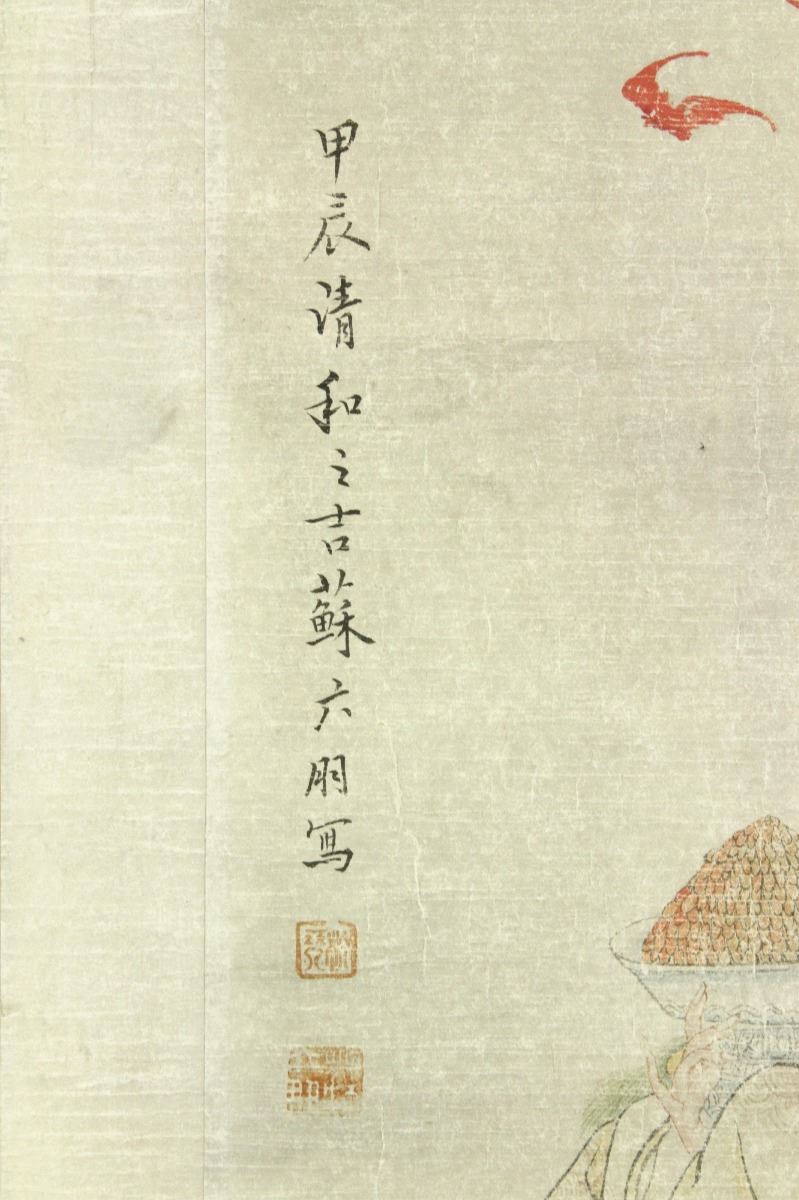 甲辰清和之吉蘇六朋寫